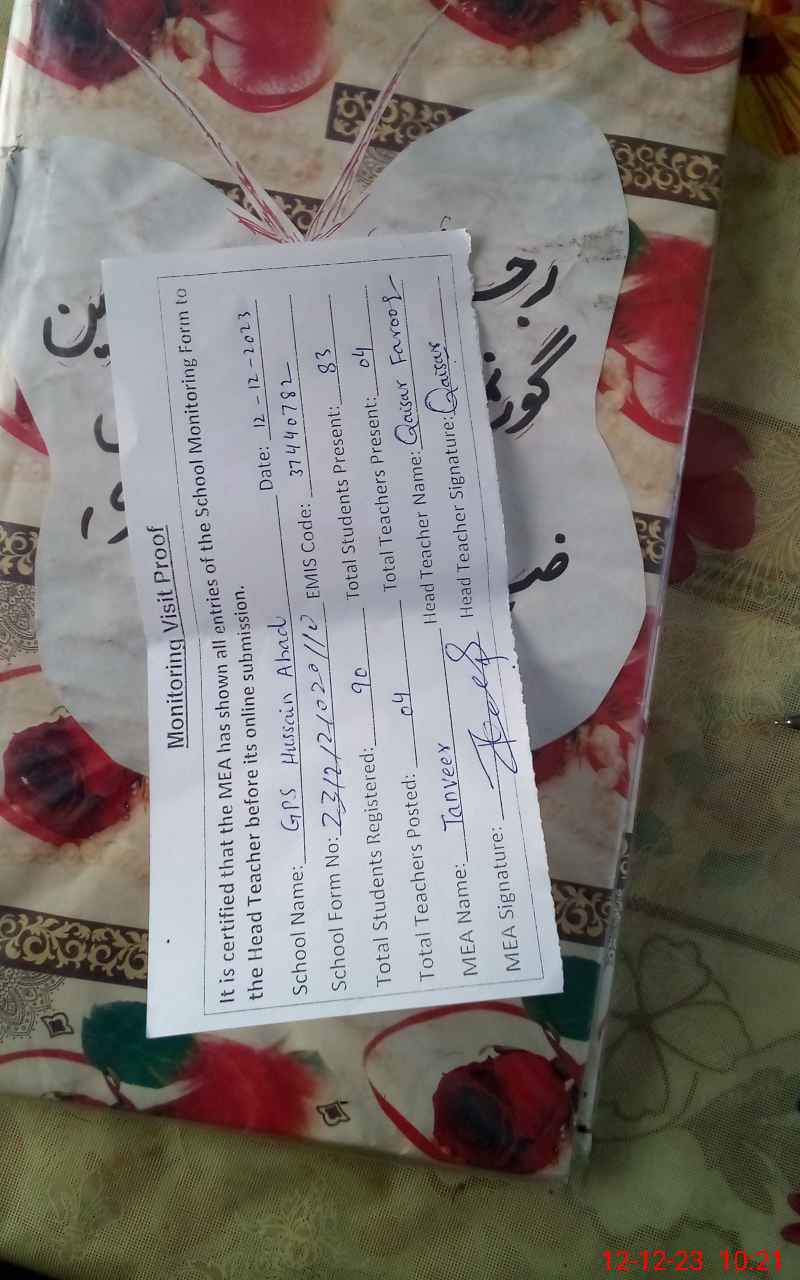 Monitoring Visit Proof
It is certified that the MEA has shown all entries of the School Monitoring Form to
the Head Teacher before its online submission.
School Name: GPS Hussain Abad Date: 12-12-2023
School Form No: EMIS Code: 37440782
Total Students Registered: 90 Total Students Present: 83
Total Teachers Posted: 04 Total Teachers Present: 04
MEA Name: Tanveer Head Teacher Name: Qaisar Farooq
MEA Signature: Head Teacher Signature: Qaisar
12-12-23 10:21